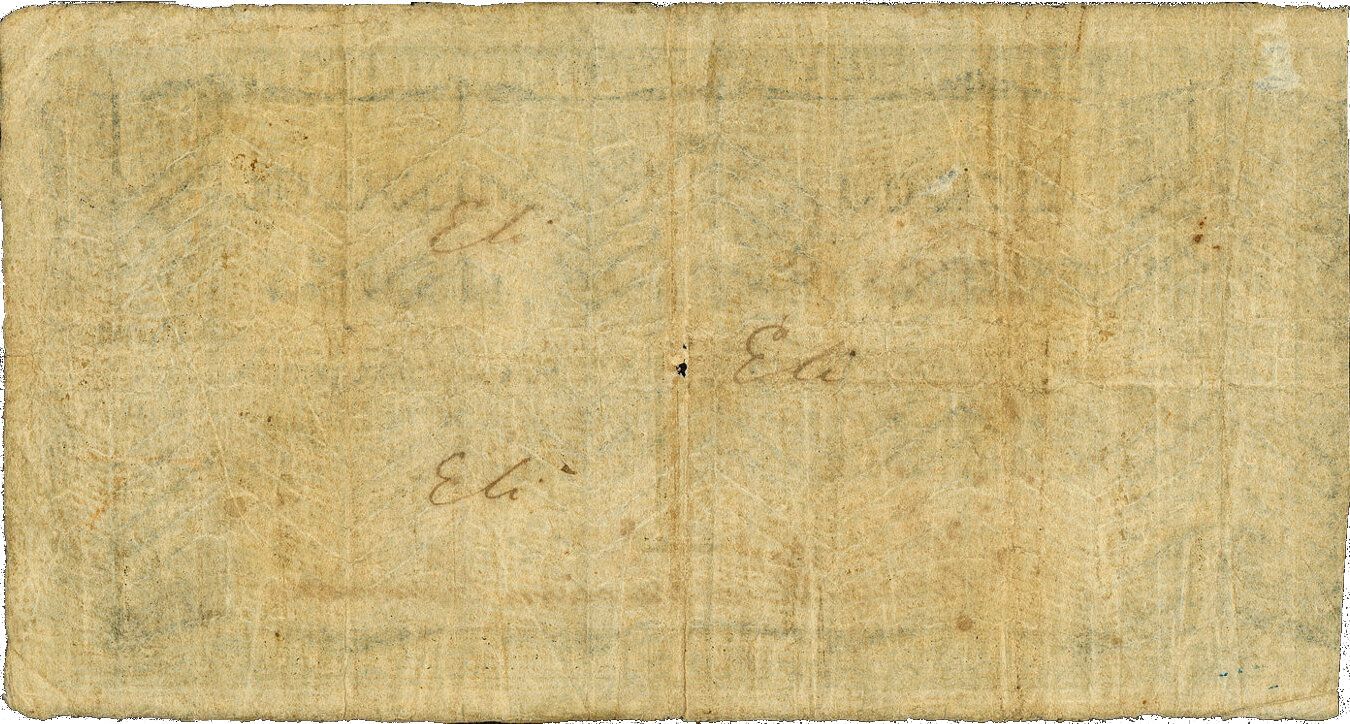 Eli
Eli
Eli